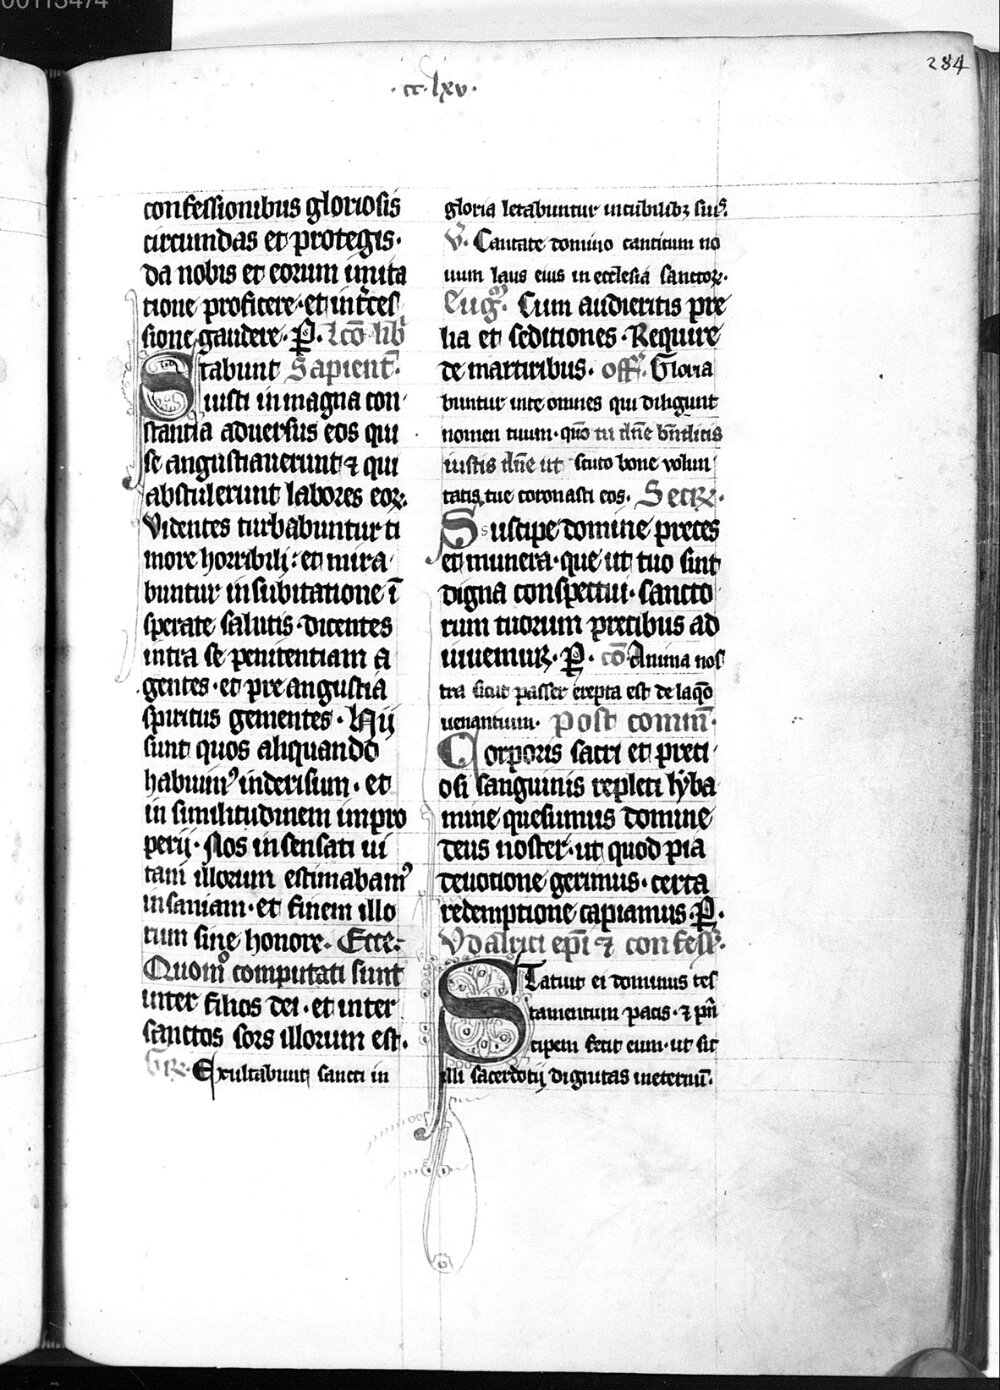 00113474
284
·cc·lxv·
confessionibus gloriosis
circundas et protegis·
da nobis et eorum imita
tione proficere·et int̄ces
sione gaudere·P̲· Lcō lib̄
Stabunt Sapient̄·
iusti in magna con
stantia adversus eos qui
se angustiaverunt ⁊ qui
abstulerunt labores eoꝝ·
Videntes turbabuntur ti
more horribili: et mira
buntur in subitatione ī
sperate salutis·dicentes
intra se penitentiam a
gentes·et pre angustia
spiritus gementes·Hij
sunt quos aliquando
habuimꝰ in derisum·et
in similitudinem impro
perij·Nos insensati vi
tam illorum estimabamꝰ
insaniam·et finem illo
rum sine honore·Ecce·
Quomͦ computati sunt
inter filios dei·et inter
sanctos sors illorum est·
Gꝝ·Exultabunt sancti in
gloria letabuntur in cubilibꝫ suis·
V̄·Cantate domino canticum no
uum laus eius in ecclesia sanctoꝝ·
Eug̅· Cum audieritis pre
lia et seditiones·Require
de martiribus·off̄·Gloria
buntur in te omnes qui diligunt
nomen tuum·qm̄ tu dn̄e bn̄dicis
iustis dn̄e ut scuto bone volun
tatis tue coronasti eos· Secꝝ·
Suscipe domine preces
et munera·que ut tuo sint
digna conspectui·sancto
rum tuorum precibus ad
iuvemur·P̲·cō Anima nos
tra sicut passer erepta est de laqͦo
uenantium· post comm̄·
Corporis sacri et preci
osi sanguinis repleti lyba
mine quesumus domine
deus noster·ut quod pia
devotione gerimus·certa
redemptione capiamus·P̲·
Vdalrici ep̄i ⁊ confess̄·
Statuit ei dominus tes
tamentum pacis·⁊ pn̄
cipem fecit eum·ut sit
illi sacerdotij dignitas in eternū·